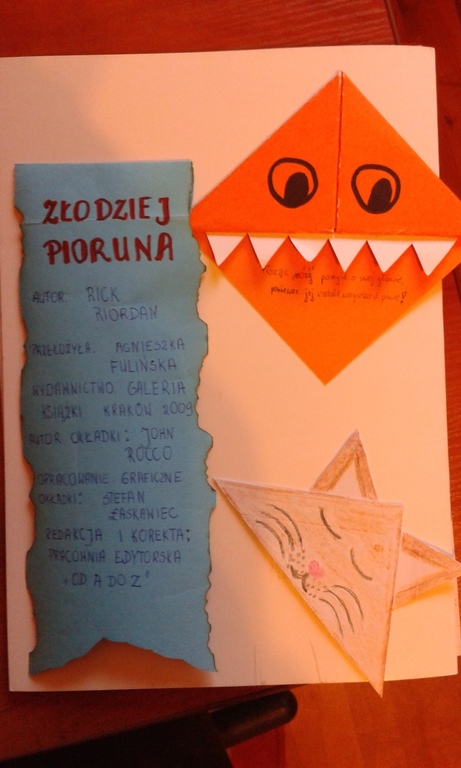 ZŁODZIEJ
PIORUNA
AUTOR: RICK
RIORDAN
PRZEŁOŻYŁA: AGNIESZKA
FULIŃSKA
WYDAWNICTWO GALERIA
KSIĄŻKI KRAKÓW 2009
AUTOR OKŁADKI: JOHN
ROCCO
OPRACOWANIE GRAFICZNE
OKŁADKI: STEFAN
ŁASKAWIEC
REDAKCJA I KOREKTA:
PRACOWNIA EDYTORSKA
"OD A DO Z"